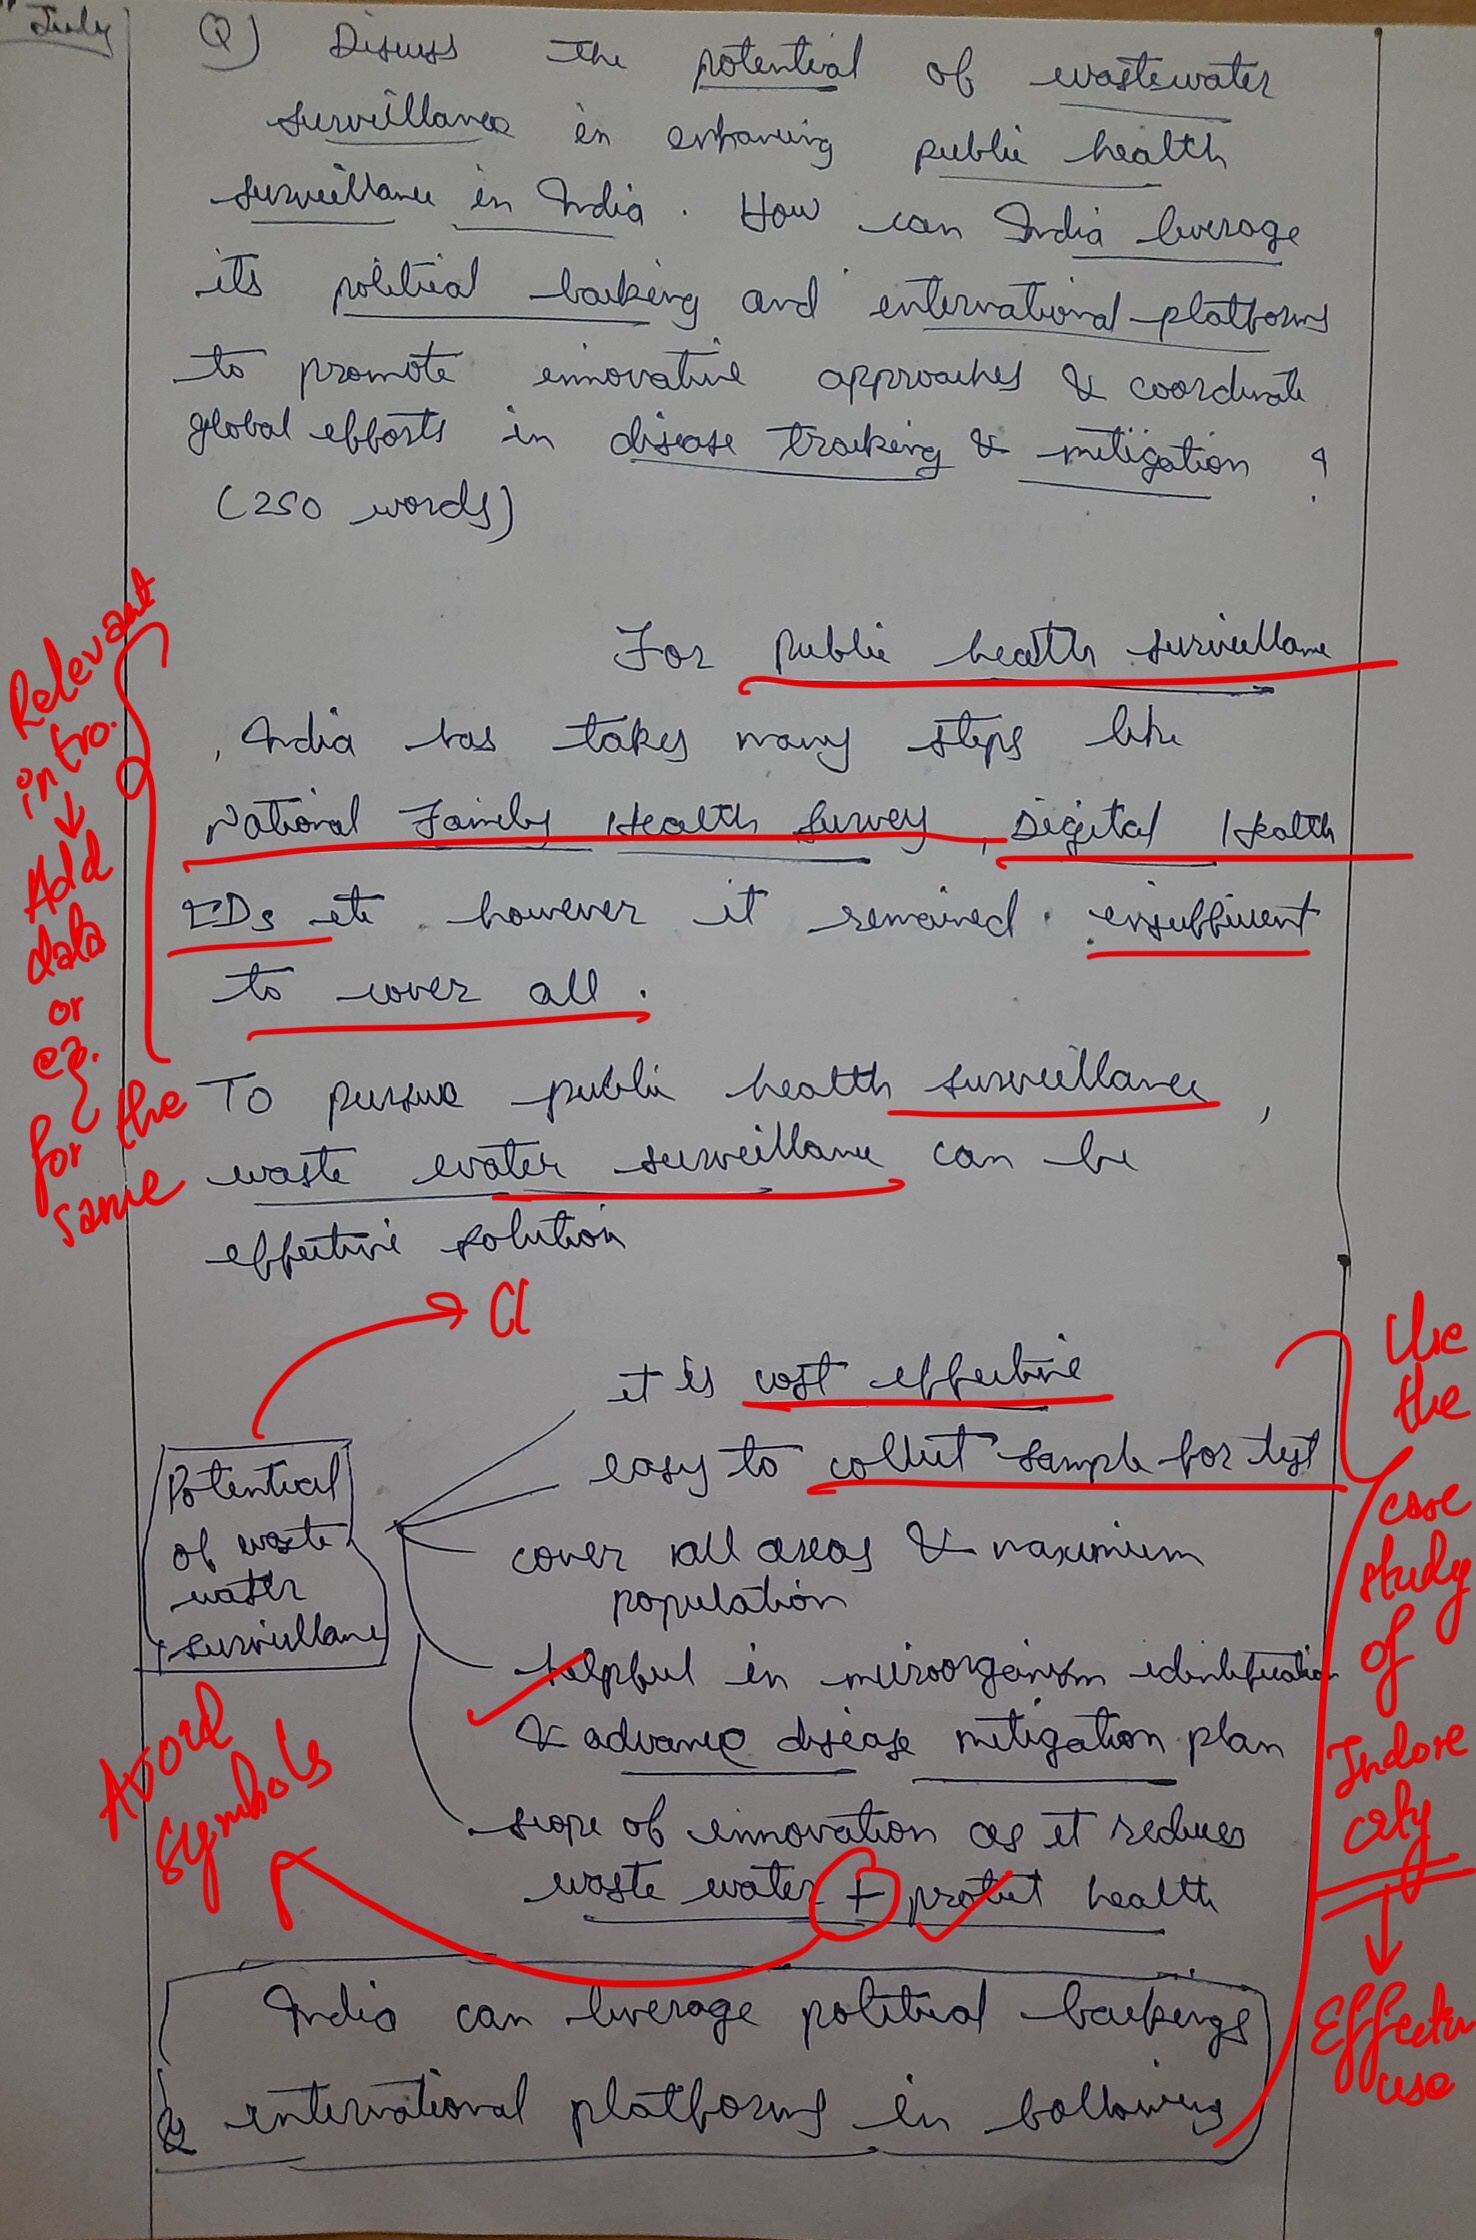 July
Q) Discuss the potential of wastewater
surveillance in enhancing public health
surveillance in India. How can India leverage
its political backing and international platforms
to promote innovative approaches & coordinate
global efforts in disease tracking & mitigation ?
(250 words)
For public health surveillance
, India has takes many steps like
National Family Health Survey, Digital Health
IDs etc however it remained insufficient
to cover all.
To pursue public health surveillance,
waste water surveillance can be
effective solution
Relevant
intro.
Add
data
or
eg.
for the
same
Potential
of waste
water
surveillance
it is cost effective
easy to collect sample for test
cover all areas & maximum
population
helpful in microorganism identification
& advance disease mitigation plan
scope of innovation as it reduces
waste water + protect health
Avoid
symbols
Use
the
case
study
of
Indore
city
Effective
use
India can leverage political backings
& international platforms in following